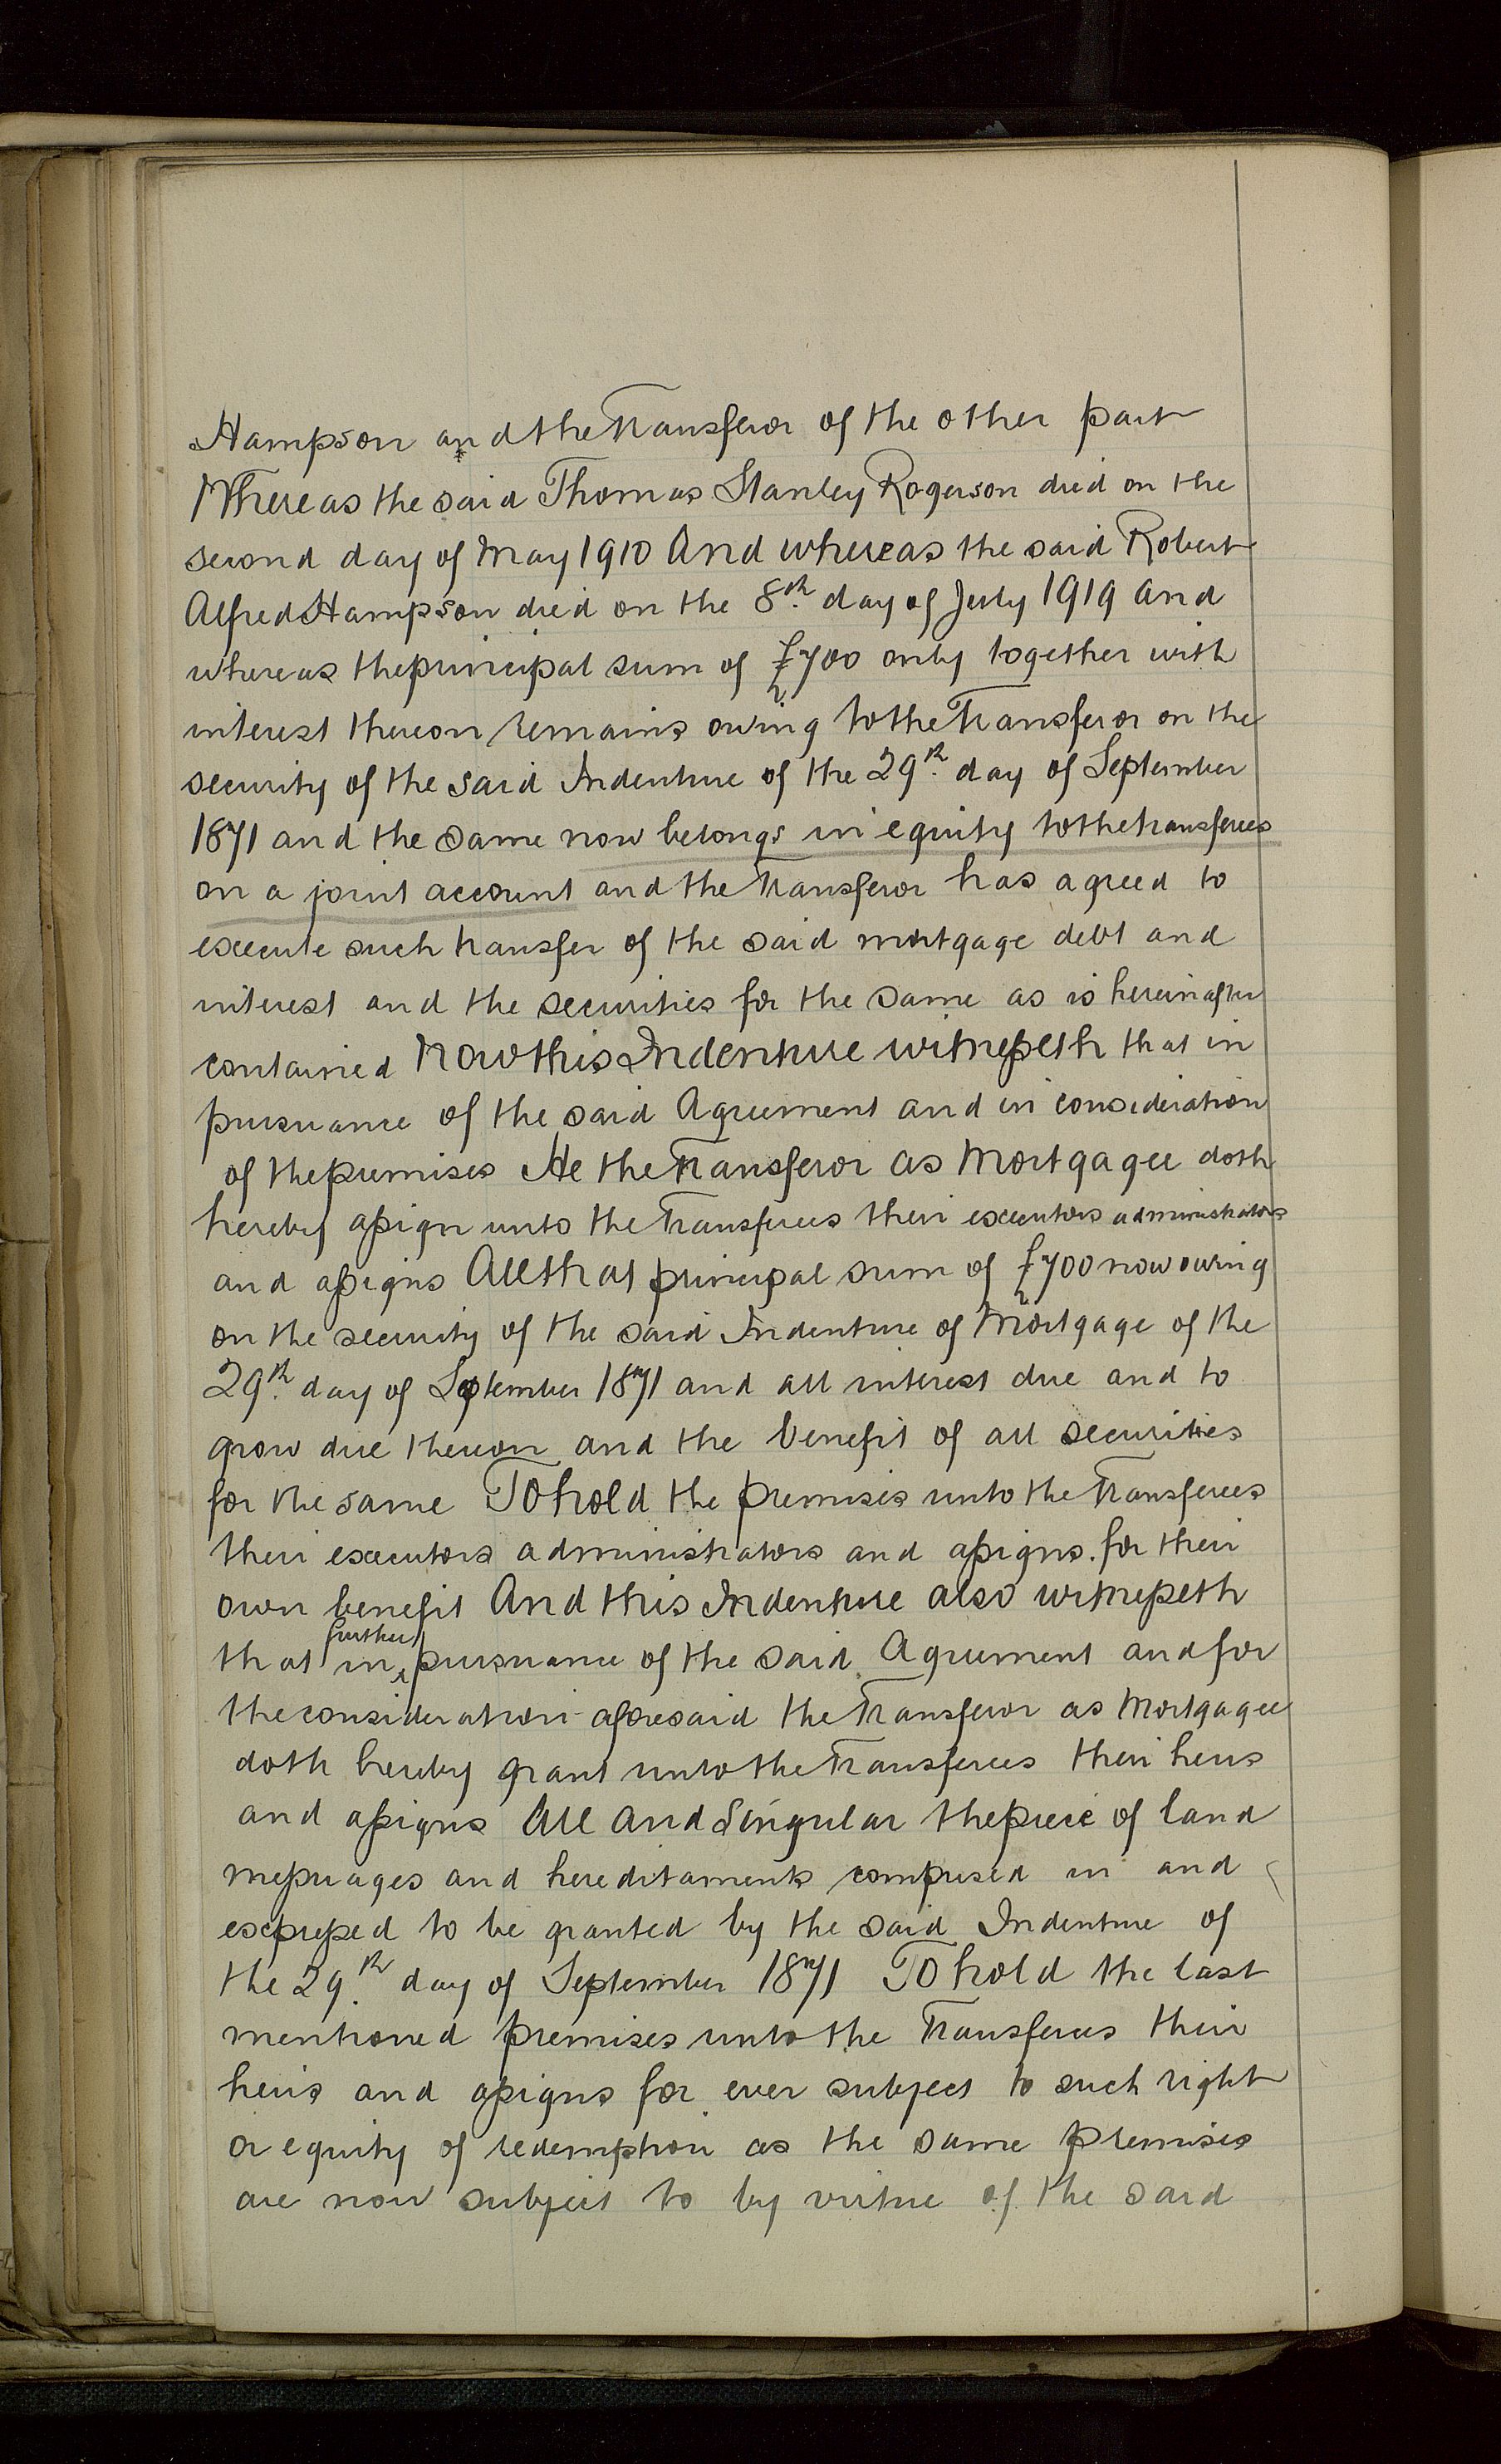 Hampson and the Transferor of the other part
Whereas the said Thomas Stanley Rogerson died on the
second day of May 1910 And whereas the said Robert
Alfred Hampson died on the 8th. day of July 1919 And
whereas the principal sum of £700 only together with
interest thereon remains owing to the Transferor on the
security of the said Indenture of the 29th. day of September
1871 and the same now belongs in equity to the transferees
on a joint account and the Transferor has agreed to
execute such transfer of the said mortgage debt and
interest and the securities for the same as is hereinafter
contained Now this Indenture witnesseth that in
pursuance of the said Agreement and in consideration
of the premises He the Transferor as Mortgagee doth
hereby assign unto the Transferees their executors administrators
and assigns All that principal sum of £700 now owing
on the security of the said Indenture of Mortgage of the
29th. day of September 1871 and all interest due and to
grow due thereon and the benefit of all securities
for the same To hold the premises unto the Transferees
their executors administrators and assigns for their
own benefit And this Indenture also witnesseth
further
that in pursuance of the said Agreement and for
the consideration aforesaid the Transferor as Mortgagee
doth hereby grant unto the Transferees their heirs
and assigns All And Singular the piece of land
messuages and hereditaments comprised in and
expressed to be granted by the said Indenture of
the 29th. day of September 1871 To hold the last
mentioned premises unto the Transferees their
heirs and assigns for ever subject to such right
or equity of redemption as the same premises
are now subject to by virtue of the said